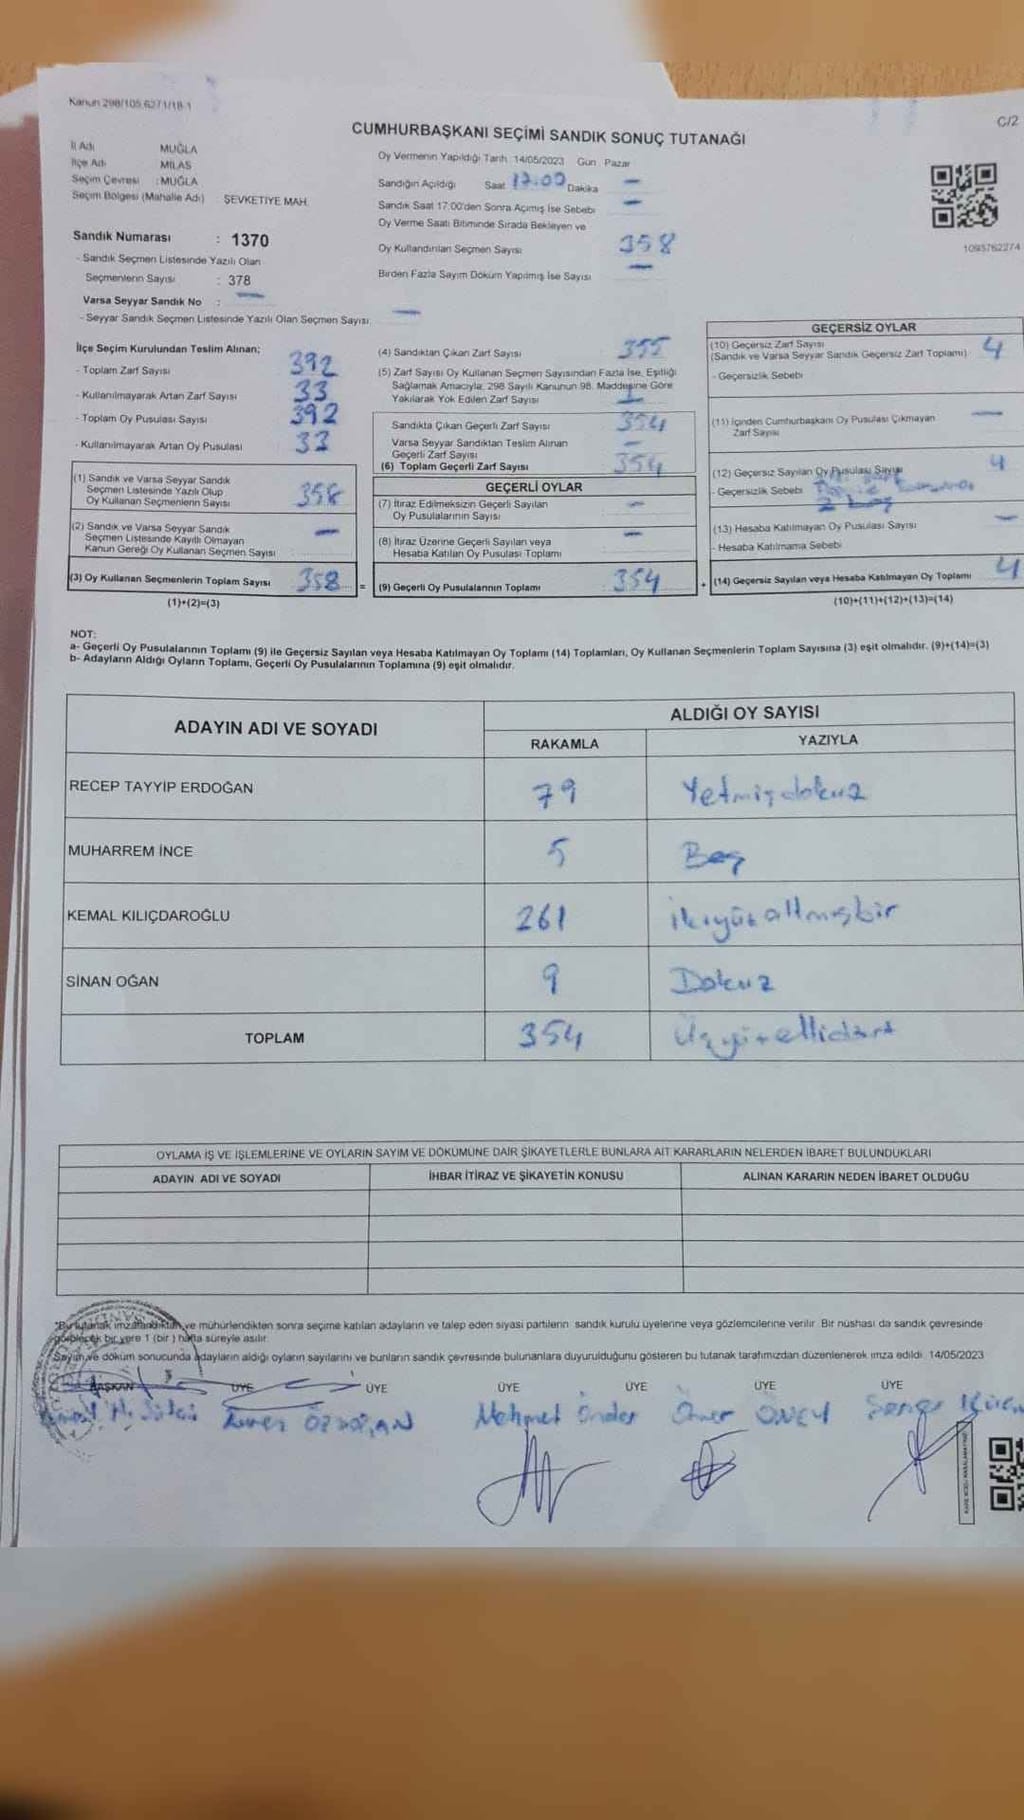 Kanun 298/105,6271/18-1
C/2
CUMHURBAŞKANI SEÇİMİ SANDIK SONUÇ TUTANAĞI
İl Adı MUĞLA
İlçe Adı MİLAS
Seçim Çevresi : MUĞLA
Seçim Bölgesi (Mahalle Adı) ŞEVKETİYE MAH.
Sandık Numarası : 1370
- Sandık Seçmen Listesinde Yazılı Olan
Seçmenlerin Sayısı : 378
Varsa Seyyar Sandık No : —
- Seyyar Sandık Seçmen Listesinde Yazılı Olan Seçmen Sayısı —
Oy Vermenin Yapıldığı Tarih 14/05/2023 Gün Pazar
Sandığın Açıldığı Saat 17:00 Dakika —
Sandık Saat 17:00'den Sonra Açımış İse Sebebi —
Oy Verme Saati Bitiminde Sırada Bekleyen ve
Oy Kullandırılan Seçmen Sayısı 358
Birden Fazla Sayım Döküm Yapılmış İse Sayısı —
1095762274
İlçe Seçim Kurulundan Teslim Alınan;
- Toplam Zarf Sayısı 392
- Kullanılmayarak Artan Zarf Sayısı 33
- Toplam Oy Pusulası Sayısı 392
- Kullanılmayarak Artan Oy Pusulası 33
(1) Sandık ve Varsa Seyyar Sandık
Seçmen Listesinde Yazılı Olup
Oy Kullanan Seçmenlerin Sayısı 358
(2) Sandık ve Varsa Seyyar Sandık
Seçmen Listesinde Kayıtlı Olmayan
Kanun Gereği Oy Kullanan Seçmen Sayısı —
(3) Oy Kullanan Seçmenlerin Toplam Sayısı 358 =
(1)+(2)=(3)
(4) Sandıktan Çıkan Zarf Sayısı 355
(5) Zarf Sayısı Oy Kullanan Seçmen Sayısından Fazla İse, Eşitliği
Sağlamak Amacıyla, 298 Sayılı Kanunun 98. Maddesine Göre
Yakılarak Yok Edilen Zarf Sayısı 1
Sandıkta Çıkan Geçerli Zarf Sayısı 354
Varsa Seyyar Sandıktan Teslim Alınan
Geçerli Zarf Sayısı —
(6) Toplam Geçerli Zarf Sayısı 354
GEÇERLİ OYLAR
(7) İtiraz Edilmeksizin Geçerli Sayılan
Oy Pusulalarının Sayısı —
(8) İtiraz Üzerine Geçerli Sayılan veya
Hesaba Katılan Oy Pusulası Toplamı —
(9) Geçerli Oy Pusulalarının Toplamı 354 +
GEÇERSİZ OYLAR
(10) Geçersiz Zarf Sayısı 4
(Sandık ve Varsa Seyyar Sandık Geçersiz Zarf Toplamı)
- Geçersizlik Sebebi
(11) İçinden Cumhurbaşkanı Oy Pusulası Çıkmayan
Zarf Sayısı —
(12) Geçersiz Sayılan Oy Pusulası Sayısı 4
- Geçersizlik Sebebi
(13) Hesaba Katılmayan Oy Pusulası Sayısı —
- Hesaba Katılmama Sebebi
(14) Geçersiz Sayılan veya Hesaba Katılmayan Oy Toplamı 4
(10)+(11)+(12)+(13)=(14)
NOT:
a- Geçerli Oy Pusulalarının Toplamı (9) ile Geçersiz Sayılan veya Hesaba Katılmayan Oy Toplamı (14) Toplamları, Oy Kullanan Seçmenlerin Toplam Sayısına (3) eşit olmalıdır. (9)+(14)=(3)
b- Adayların Aldığı Oyların Toplamı, Geçerli Oy Pusulalarının Toplamına (9) eşit olmalıdır.
ADAYIN ADI VE SOYADI
ALDIĞI OY SAYISI
RAKAMLA YAZIYLA
RECEP TAYYİP ERDOĞAN 79 Yetmişdokuz
MUHARREM İNCE 5 Beş
KEMAL KILIÇDAROĞLU 261 ikiyüzaltmışbir
SİNAN OĞAN 9 Dokuz
TOPLAM 354 Üçyüzellidört
OYLAMA İŞ VE İŞLEMLERİNE VE OYLARIN SAYIM VE DÖKÜMÜNE DAİR ŞİKAYETLERLE BUNLARA AİT KARARLARIN NELERDEN İBARET BULUNDUKLARI
ADAYIN ADI VE SOYADI İHBAR İTİRAZ VE ŞİKAYETİN KONUSU ALINAN KARARIN NEDEN İBARET OLDUĞU
*Bu tutanak imzalandıktan ve mühürlendikten sonra seçime katılan adayların ve talep eden siyasi partilerin sandık kurulu üyelerine veya gözlemcilerine verilir. Bir nüshası da sandık çevresinde
görülecek bir yere 1 (bir) hafta süreyle asılır.
Sayım ve döküm sonucunda adayların aldığı oyların sayılarını ve bunların sandık çevresinde bulunanlara duyurulduğunu gösteren bu tutanak tarafımızdan düzenlenerek imza edildi. 14/05/2023
BAŞKAN ÜYE ÜYE ÜYE ÜYE ÜYE ÜYE
Mehmet Önder Ömer ÖNEY